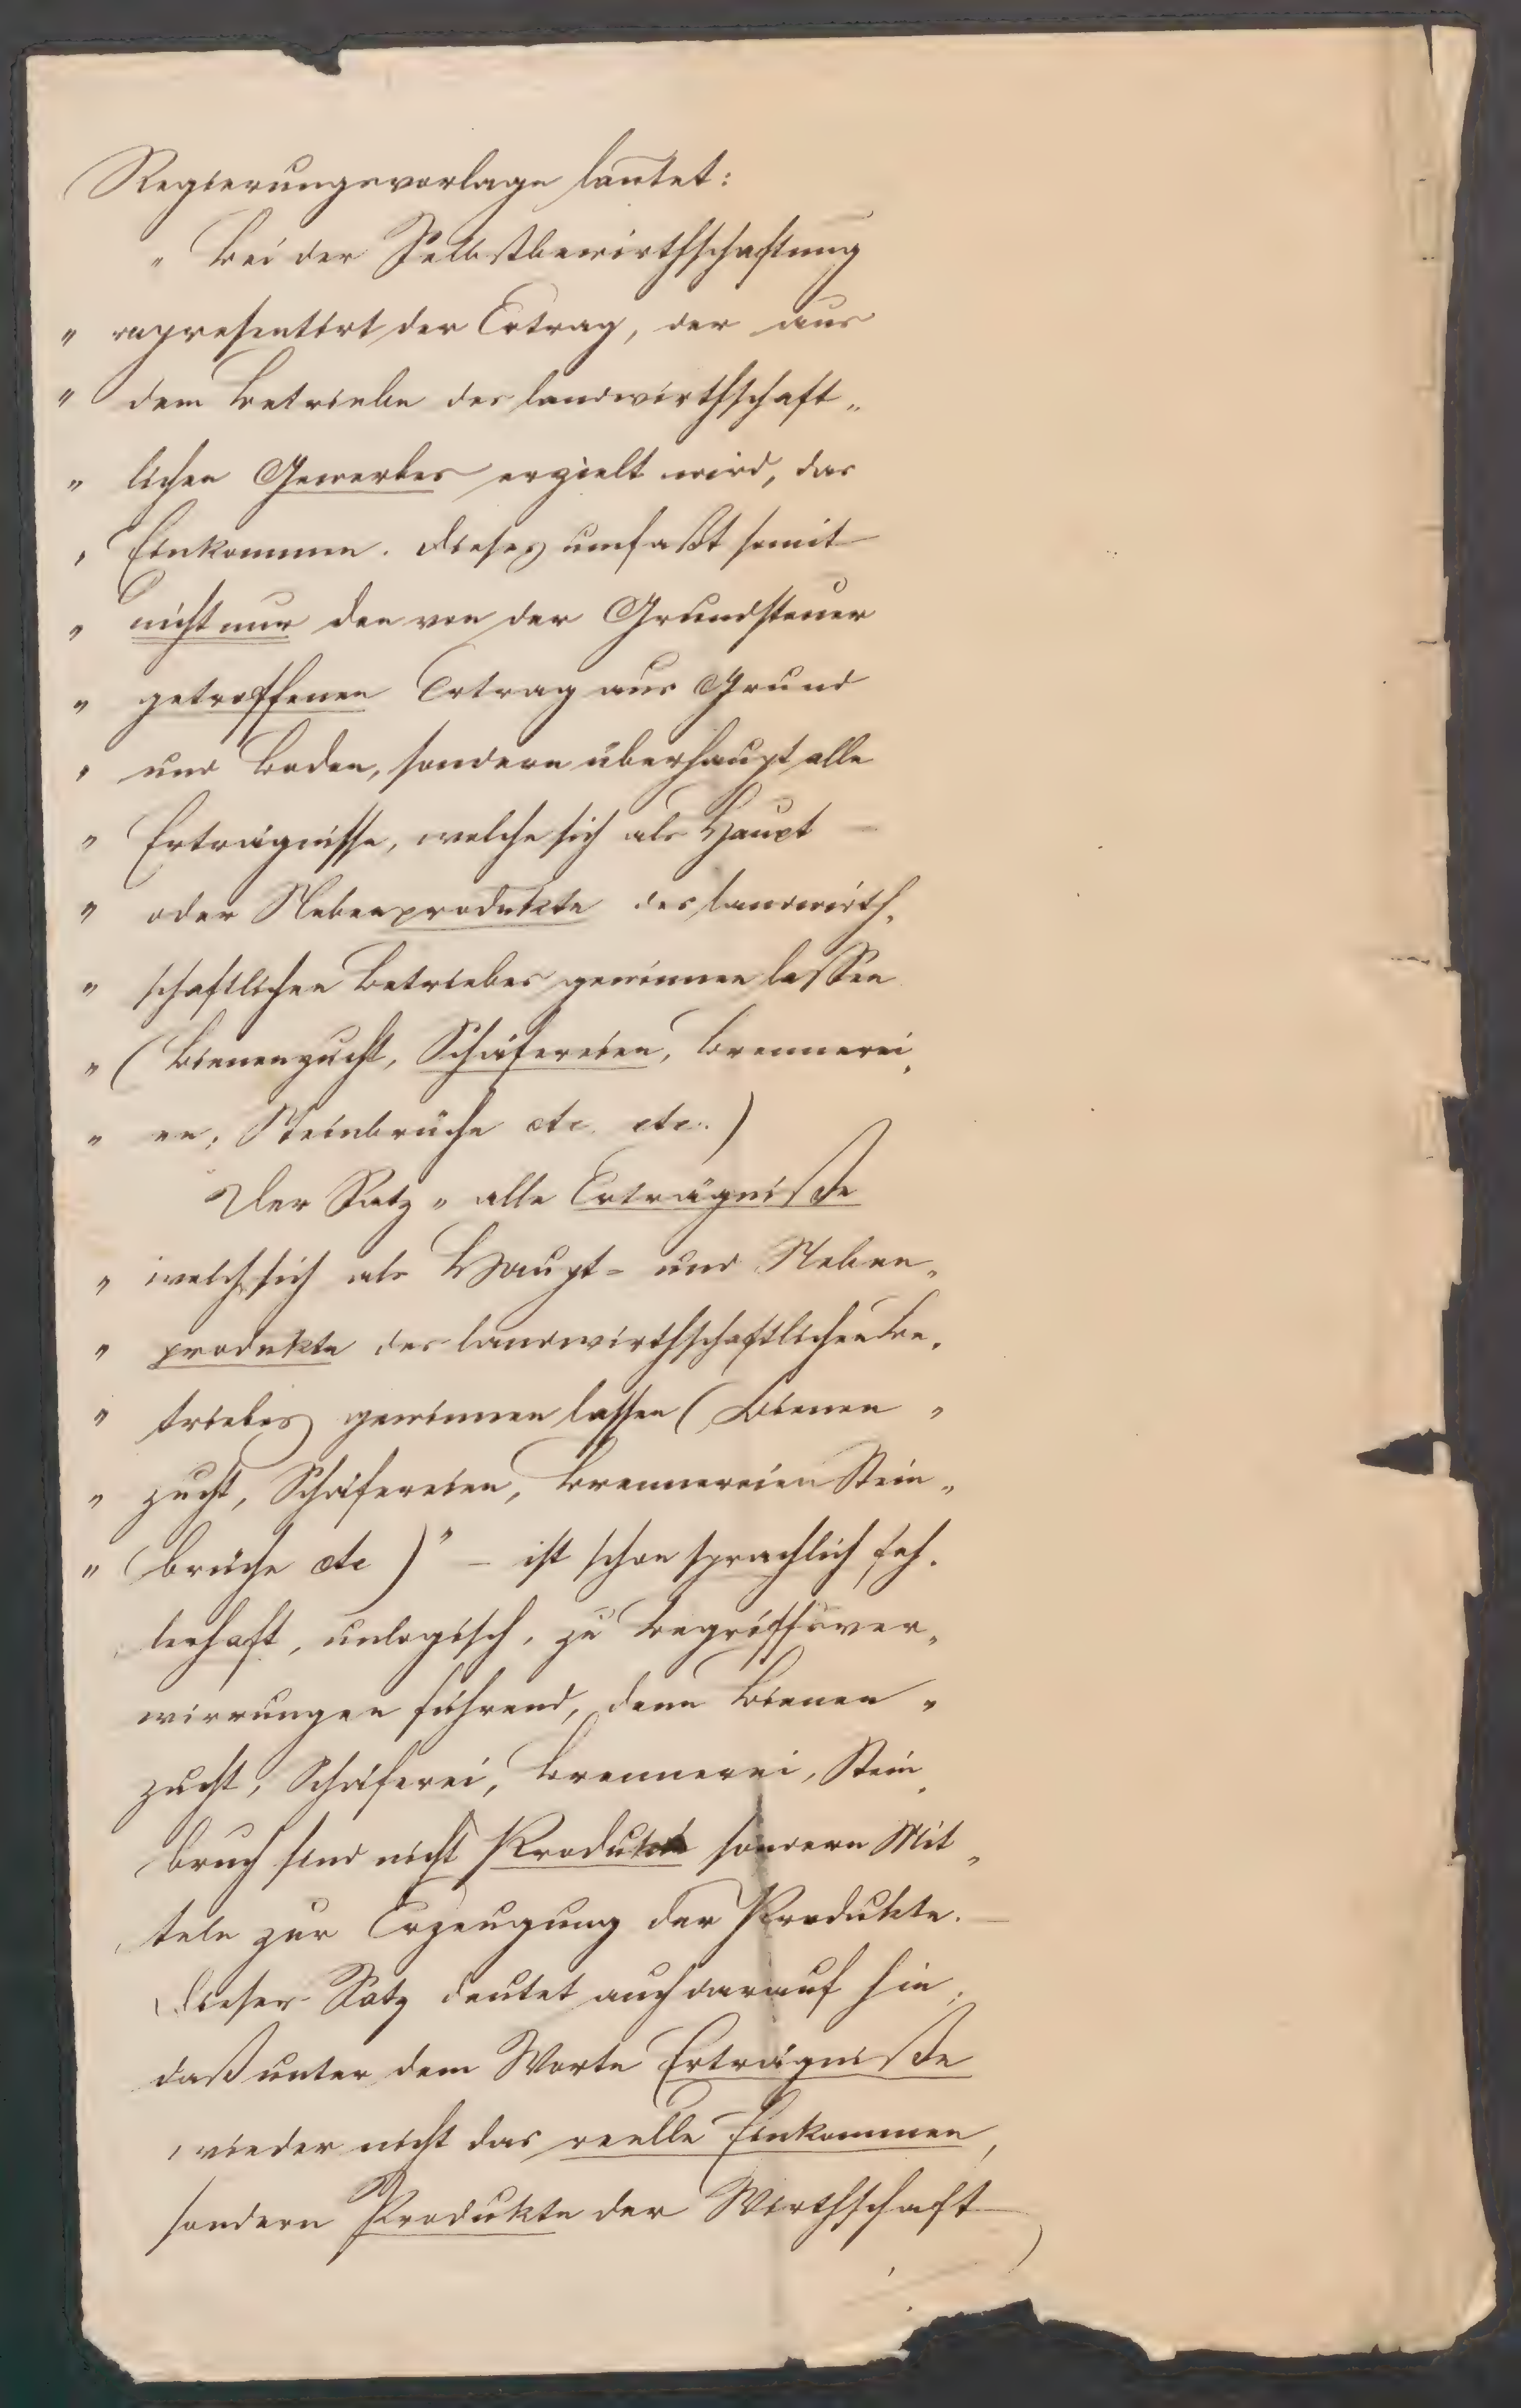 Regierungsvorlage lautet:
„ Bei der Selbstbewirthschaftung
„ representirt der Ertrag, der aus
„ dem Betriebe des landwirthschaft„
„ lichen Gewerbes erzielt wird, das
„ Einkommen. Dieses umfaßt somit
„ nicht nur den von der Grundsteuer
„ getroffenen Ertrag aus Grund
„ und Boden, sondern überhaupt alle
„ Erträgnisse, welche sich als Haupt
„ oder Nebenprodukte des landwirth„
„ schaftlichen Betriebes gewinnen lassen
„ (Bienenzucht, Schäfereien, Brennerei„
„ en, Steinbrüche etc. etc.)
Der Satz „ alle Erträgniße
„ welche sich als Haupt- und Neben„
„ produkte des landwirthschaftlichen Be„
„ triebes gewinnen lassen (Bienen „
„ zucht, Schäfereien, Brennereien Stein„
„ brüche etc )" – ist schon sprachlich feh„
lerhaft, unlogisch, zu Begriffsver„
wirrungen führend, denn Bienen „
zucht, Schäferei, Brennerei, Stein„
bruch sind nicht Produkte sondern Mit„
teln zur Erzeugung der Produkte. –
Dieser Satz deutet auch darauf hin,
daß unter dem Worte Erträgniße
wieder nicht das reelle Einkommen,
sondern Produkte der Wirthschaft